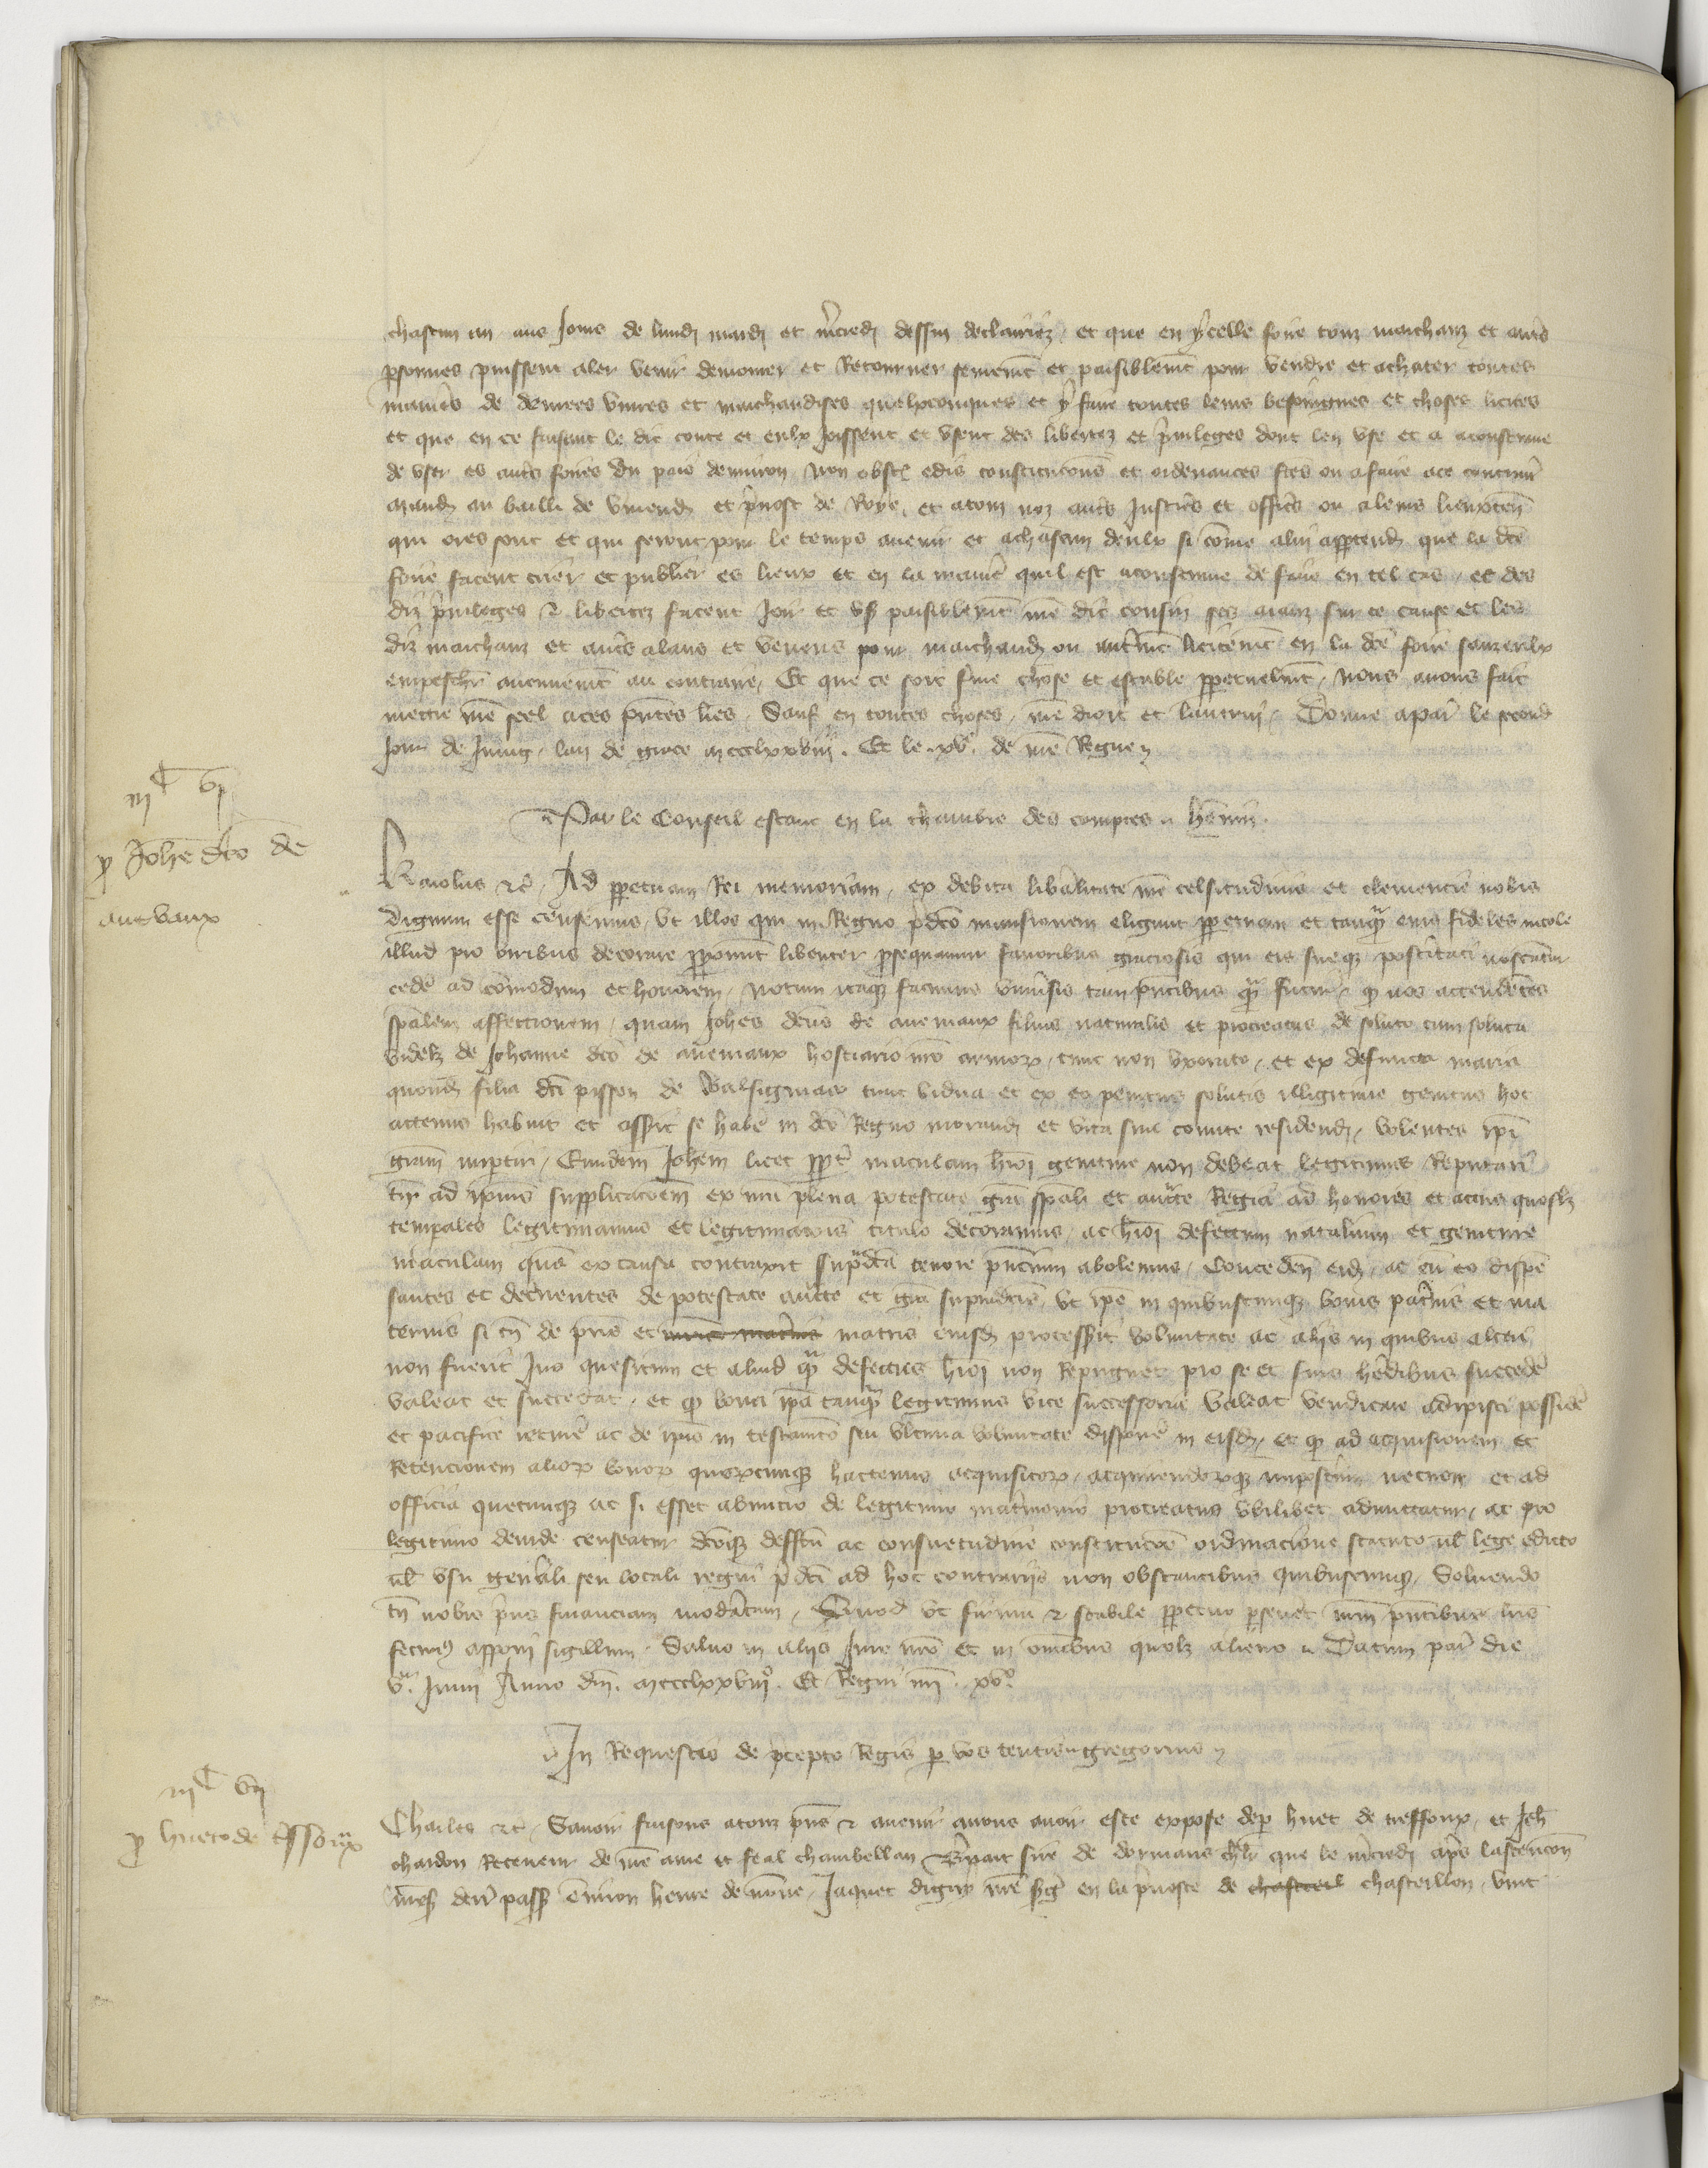 chascun an aus Jours de lundi mardi et mercredi dessus declairiez, et que en ycelle foire touz marchanz et autres
personnes puissent aler venir demourer et Retourner seurement et paisiblement pour vendre et achater toutes
manieres de denrees vivres et marchandises quelxconques et y faire toutes leurs besoingnes et choses licites
et que en ce faisant le dit conte et eulx joissent et usent des libertez et privileges dont len use et a acoustume
de user es autres foires du pais denviron Non obstant edis constitucions et ordenances faites ou a faire a ce contraires
mandons au bailli de Vermendois et prevost de Roye, et a touz noz autres Justiciers et officiers ou a leurs lieuxtenans
qui ores sont et qui seront pour le temps avenir et a chascun deulx si comme a lui appartendra que la dicte
foire facent crier et publier es lieux et en la maniere quil est acoustume de faire en tel cas, et des
diz privileges et libertez facent Joir et user paisiblement nostre dit cousin ses aianz sur ce cause et les
diz marchanz et autres alans et venans pour marchander ou autrement licitement en la dicte foire sanz eulx
empeschier aucunement au contraire, Et que ce soit ferme chose et estable perpetuelment, Nous avons fait
mettre nostre seel a ces presentes lettres, Sauf en toutes choses, nostre droit et lautrui, Donne a paris le second
Jour de Juing, lan de grace mccclxxviii. Et le .xve. de nostre Regne
Par le Conseil estant en la chambre des comptes
iiiC vi
pro Johanne dicto de
Karolus etc, Ad perpetuam Rei memoriam, ex debita liberalitate nostre celsitudinis et clemencie nobis
dignum esse censemus, ut illos qui in Regno predicto mansionem eligunt perpetuam et tanquam eius fideles incole
illud pro viribus decorare proponunt libenter prosequamur favoribus graciosis qui eis sueque posteritati noscantur
cedere ad commodum et honorem, Notum itaque facimus universis tam presentibus quam futuris, quod nos attendentes
specialem affectionem, quam Johannes dictus de avernaux filius naturalis et procreatus de soluto cum soluta
videlicet de Johanne dicto de avernaux hostiario nostro armorum, tunc non uxorato, et ex defuncta maria
quondam filia dicti pisson de tunc vidua et ex eo penitus solutis illigitime genitus hoc
actenus habuit et asserit se habere in dicto Regno morandi et vita sua comite residendi, volentes ipsi
graciam impertiri, Eundem Johannem licet propter maculam huiusmodi geniture non debeat legitimus Reputari
tamen ad ipsius supplicacionem ex nostri plena potestate gratia speciali et auctoritate Regia ad honores et actus quoslibet
temporales legitimamus et legitimacionis titulo decoramus, ac huiusmodi defectum natalium et geniture
maculam quam ex causa contraxit supradicta tenore presencium abolemus, Concedentes eidem, ac cum eo dispen
santes et decernentes de potestate auctoritate et gratia supradictis, ut ipse in quibuscunque bonis paternis et ma
ternis si tamen de patris et matris eiusdem processerit voluntate ac aliis in quibus alteri
non fuerit Jus quesitum et aliud quam defectus huiusmodi non Repugnet pro se et suis heredibus succedere
valeat et succedat, et quod bona ipsa tanquam legitimus vice successoria valeat vendicare adipisci possidere
et pacifice retinere ac de ipsis in testamento seu ultima voluntate disponere in eisdem, et quod ad acquisicionem et
Retencionem aliorum bonorum quorumcunque hactenus acquisitorum, acquirendorumque imposterum necnon et ad
officia quecunque ac si esset abinicio de legitimo matrimonio procreatus ubilibet admittatur, ac pro
legitimo deinde censeatur dictisque defectu ac consuetudine constitucione ordinacione statuto vel lege edicto
vel usu generali seu locali regni predicti ad hoc contrariis non obstantibus quibuscunque, Solvendo
tamen nobis prius financiam moderatam, Quod ut firmum et stabile perpetuo perseveret nostrum presentibus litteris
fecimus apponi sigillum, Salvo in aliis Jure nostro et in omnibus quolibet alieno Datum parisius die
va. Junii Anno domini mccclxxviiio. Et Regni nostri .xvo.
In Requestis de precepto Regis per vos tentis Gregorius
iiiC vii
pro hueto de tressoux
Charles etc, Savoir faisons a touz presens et avenir a nous avoir este expose de par huet de tressoux, et Jehan
chardon Receveur de nostre ame et feal chambellan sire de dormans chevalier que le mercredi apres lascencion
nostre seigneur derrenier passe environ heure de nonne, Jaquet en la prevoste de chasteil chasteillon, vint